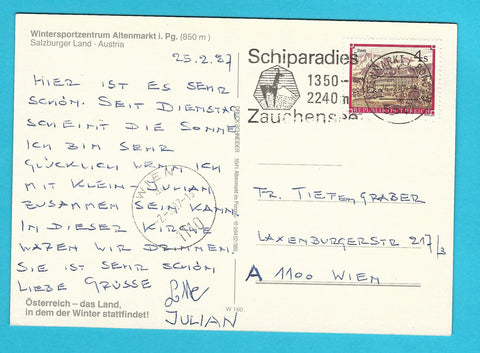 Wintersportzentrum Altenmarkt i. Pg. (850 m)
Salzburger Land · Austria
25.2.87
HIER IST ES SEHR
SCHÖN. SEIT DIENSTAG
SCHEINT DIE SONNE
ICH BIM SEHR
GLÜCKLICH WENN ICH
MIT KLEIN JULIAN
ZUSAMMEN SEIN KANN
IN DIESER KIRCHE
WAREN WIR DRINNEN
SIE IST SEHR SCHÖN
LIEBE GRÜSSE
JULIAN
Österreich – das Land,
in dem der Winter stattfindet!
W 160
Schiparadies
1350-
2240 m
Zauchensee
4 S
REPUBLIK ÖSTERREICH
1140
FR. TIEFENGRABER
LAXENBURGERSTR 217/3
A 1100 WIEN